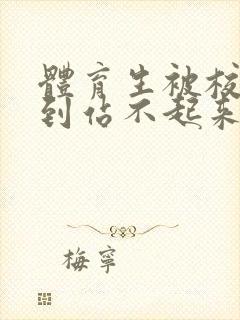 體育生被校
到佔不起來
梅寧